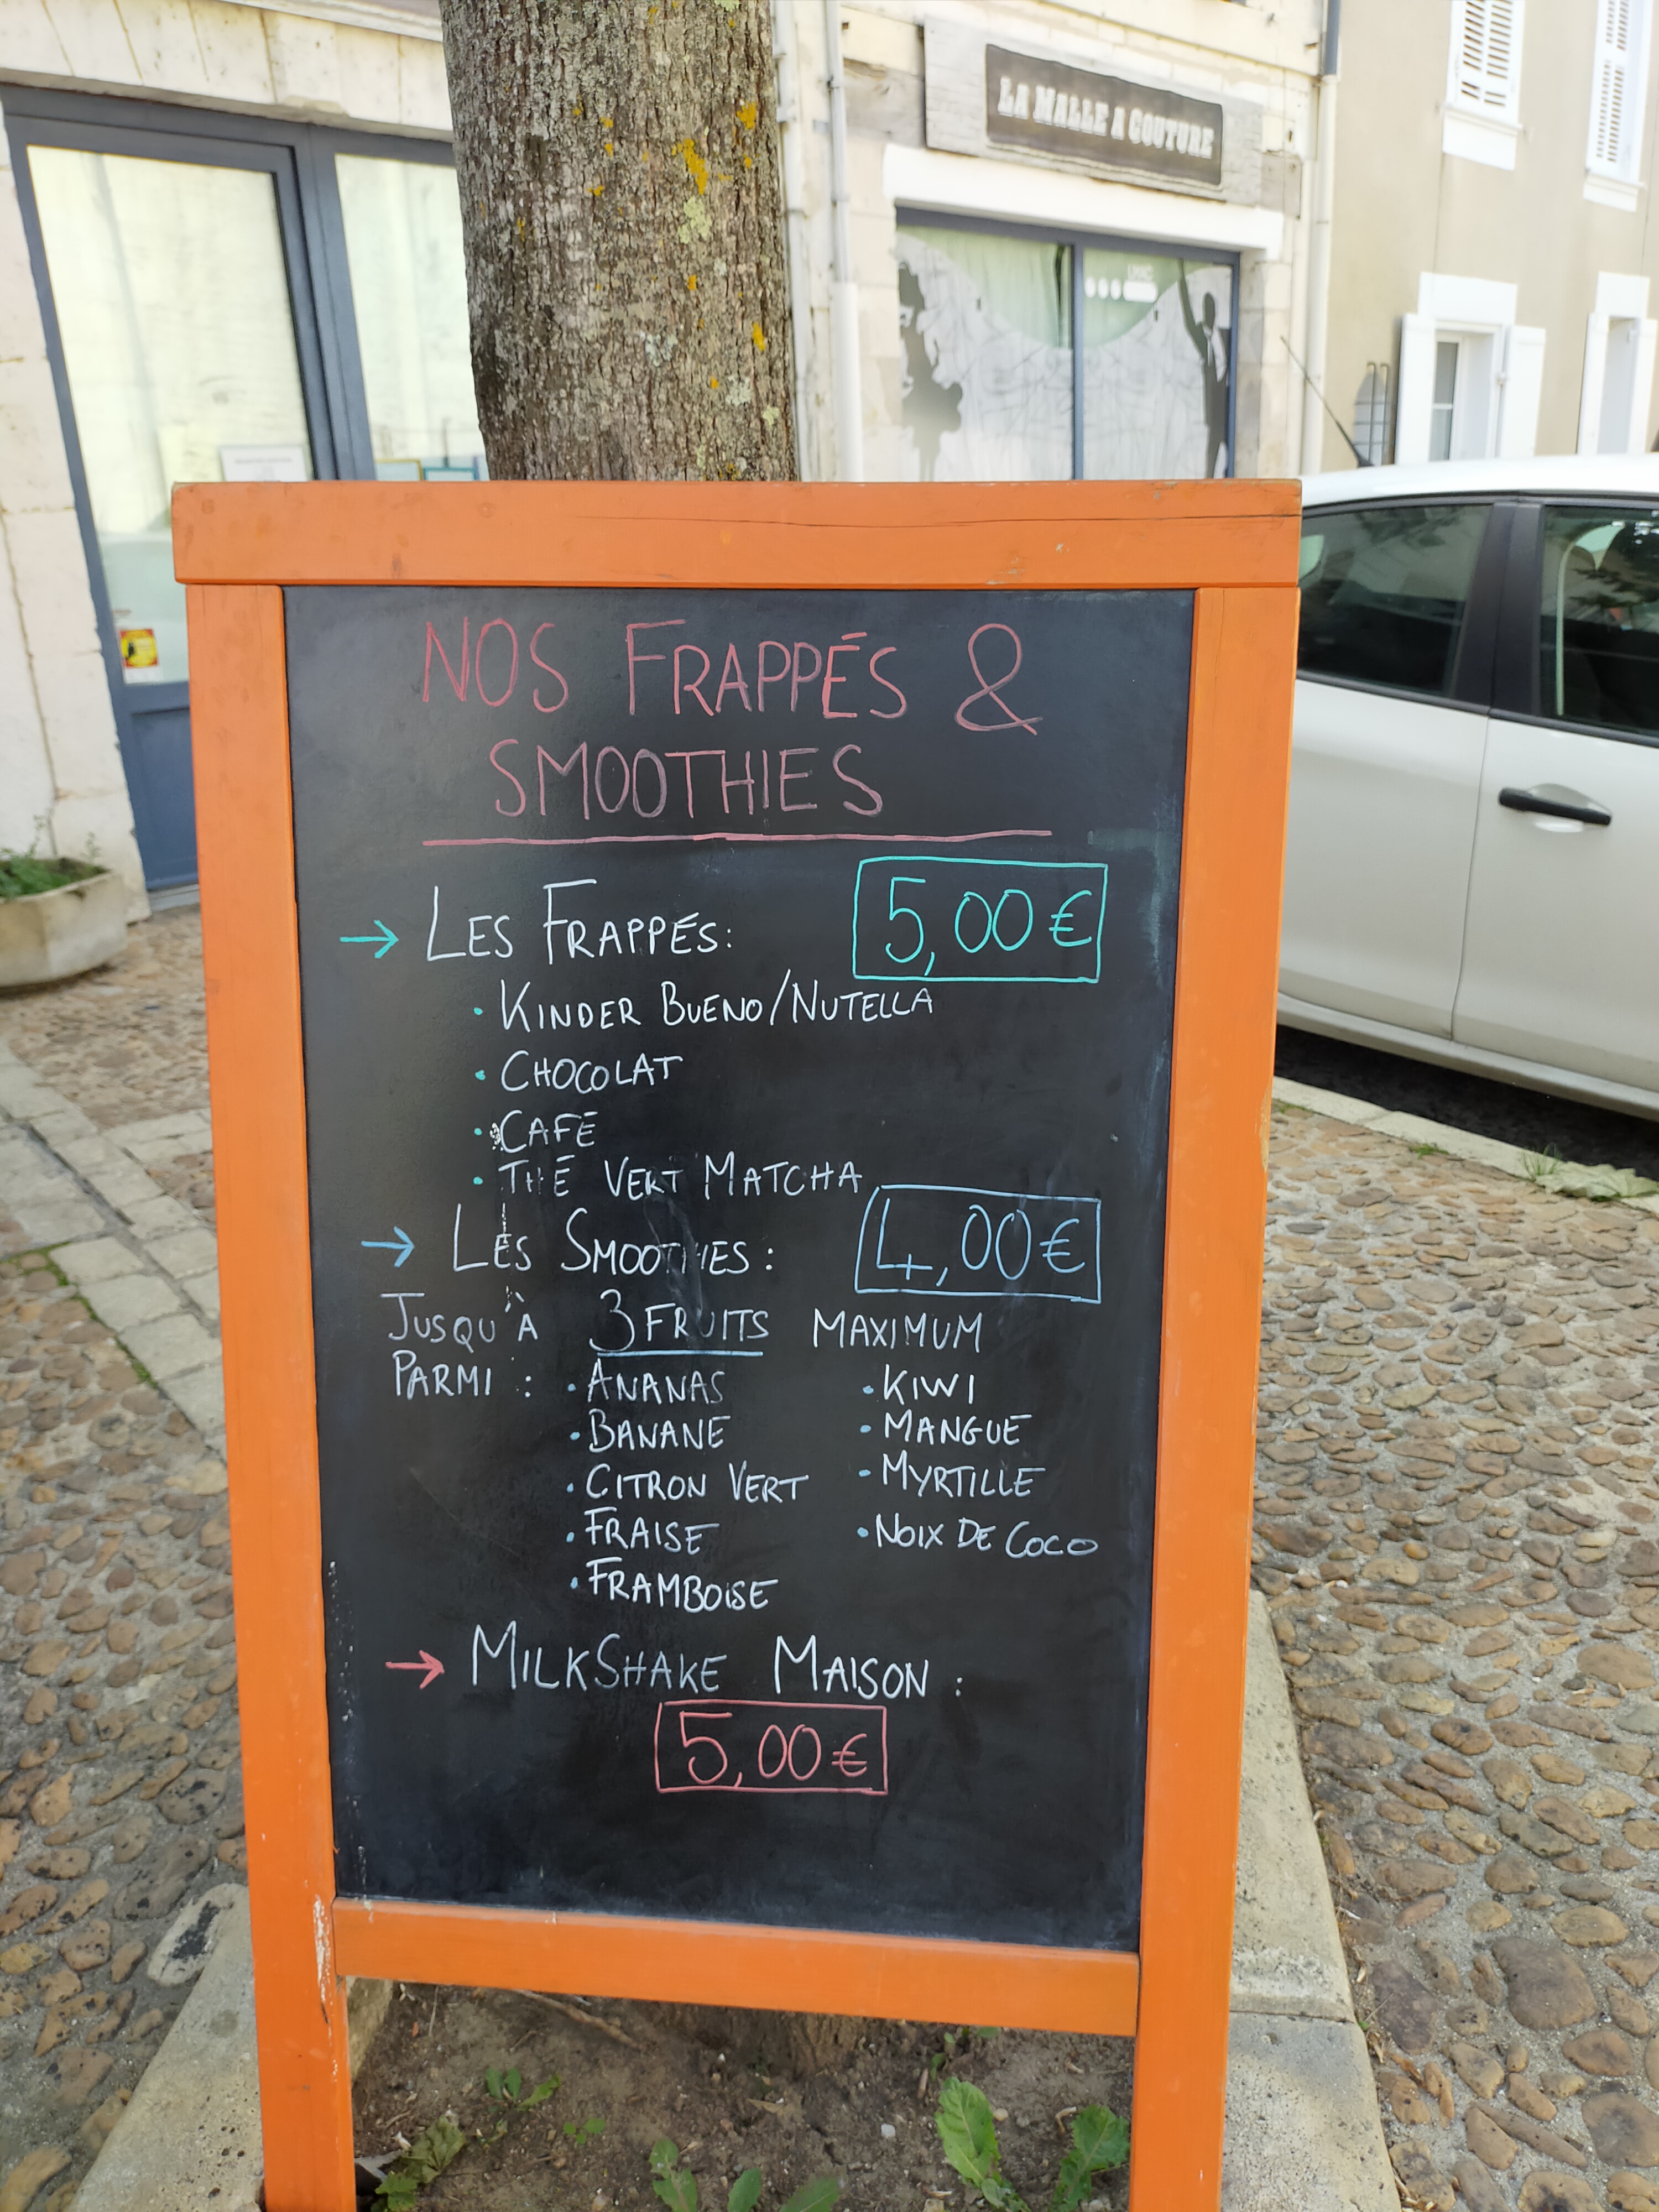 LA MALLE A COUTURE
NOS FRAPPÉS &
SMOOTHIES
→ LES FRAPPÉS: 5,00 €
• KINDER BUENO/NUTELLA
• CHOCOLAT
• CAFÉ
• THÉ VERT MATCHA
→ LES SMOOTHIES : 4,00 €
JUSQU'À 3 FRUITS MAXIMUM
PARMI : • ANANAS • KIWI
• BANANE • MANGUE
• CITRON VERT • MYRTILLE
• FRAISE • NOIX DE COCO
• FRAMBOISE
→ MILKSHAKE MAISON :
5,00 €